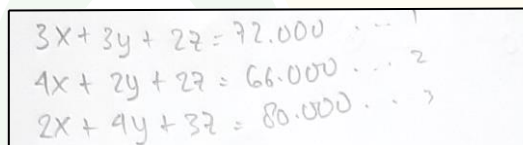 3x + 3y + 2z = 72.000 ... 1
4x + 2y + 2z = 66.000 ... 2
2x + 4y + 3z = 80.000 ... 3